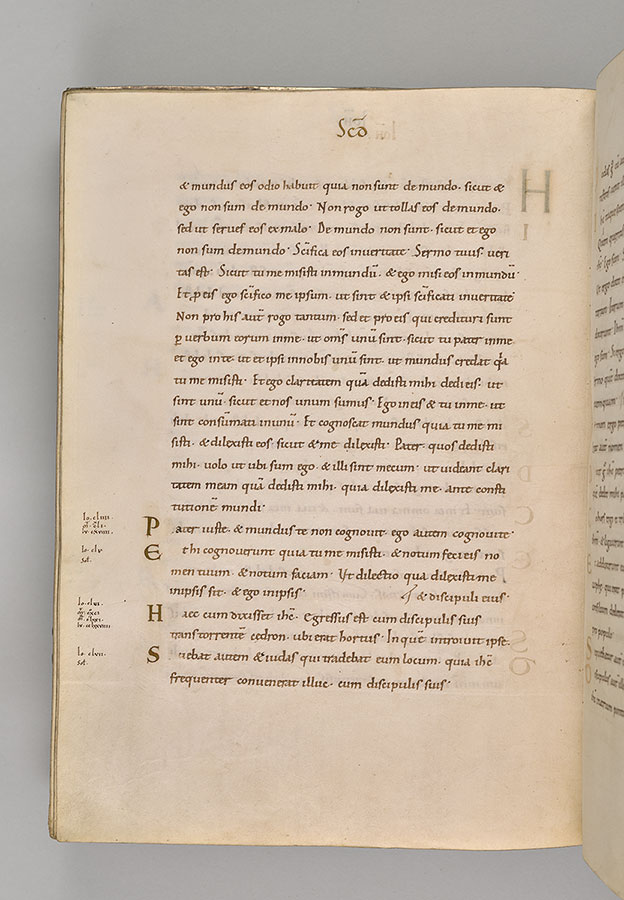 Scd̄
& mundus eos odio habuit quia non sunt de mundo · sicut &
ego non sum de mundo · Non rogo ut tollas eos de mundo ·
sed ut serves eos ex malo · De mundo non sunt · sicut et ego
non sum de mundo · Sc̄ifica eos in veritate · Sermo tuus · veri
tas est · Sicut tu me misisti in mundū · & ego misi eos in mundū ·
Et ꝓ eis ego sc̄ifico me ipsum · ut sint & ipsi sc̄ificati in veritate ·
Non pro his aut̄ rogo tantum · sed et pro eis qui credituri sunt
ꝑ verbum eorum in me · ut om̄s unū sint · sicut tu pater in me
et ego in te · ut et ipsi in nobis unū sint · ut mundus credat qͣa
tu me misisti · Et ego claritatem quā dedisti mihi dedi eis · ut
sint unū · sicut et nos unum sumus · Ego in eis & tu in me · ut
sint consūmati in unū · Et cognoscat mundus quia tu me mi
sisti · & dilexisti eos sicut & me dilexisti · Pater · quos dedisti
mihi · volo ut ubi sum ego · & illi sint mecum · ut videant clari
tatem meam quā dedisti mihi · quia dilexisti me · ante consti
tutionē mundi ·
Pater iuste · & mundus te non cognovit · ego autem cognovi te ·
Et hi cognoverunt quia tu me misisti · & notum feci eis no
men tuum · & notum faciam · Ut dilectio qua dilexisti me
in ipsis sit · & ego in ipsis · & discipuli eius ·
Haec cum dixisset ih̄c · Egressus est cum discipulis suis
trans torrentē cedron · ubi erat hortus · In quē introivit ipse ·
Sciebat autem & iudas qui tradebat eum locum · quia ih̄c
frequenter convenerat illuc · cum discipulis suis ·